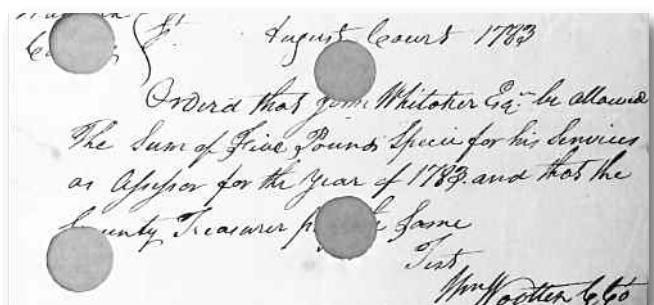 St. August Court 1783
Orderd that John Whitaker Esqr. be allowed
The Sum of Five Pounds Specie for his Services
as Assessor for the Year of 1783. and that the
County Treasurer the Same
Test
Wm Wootten CCo